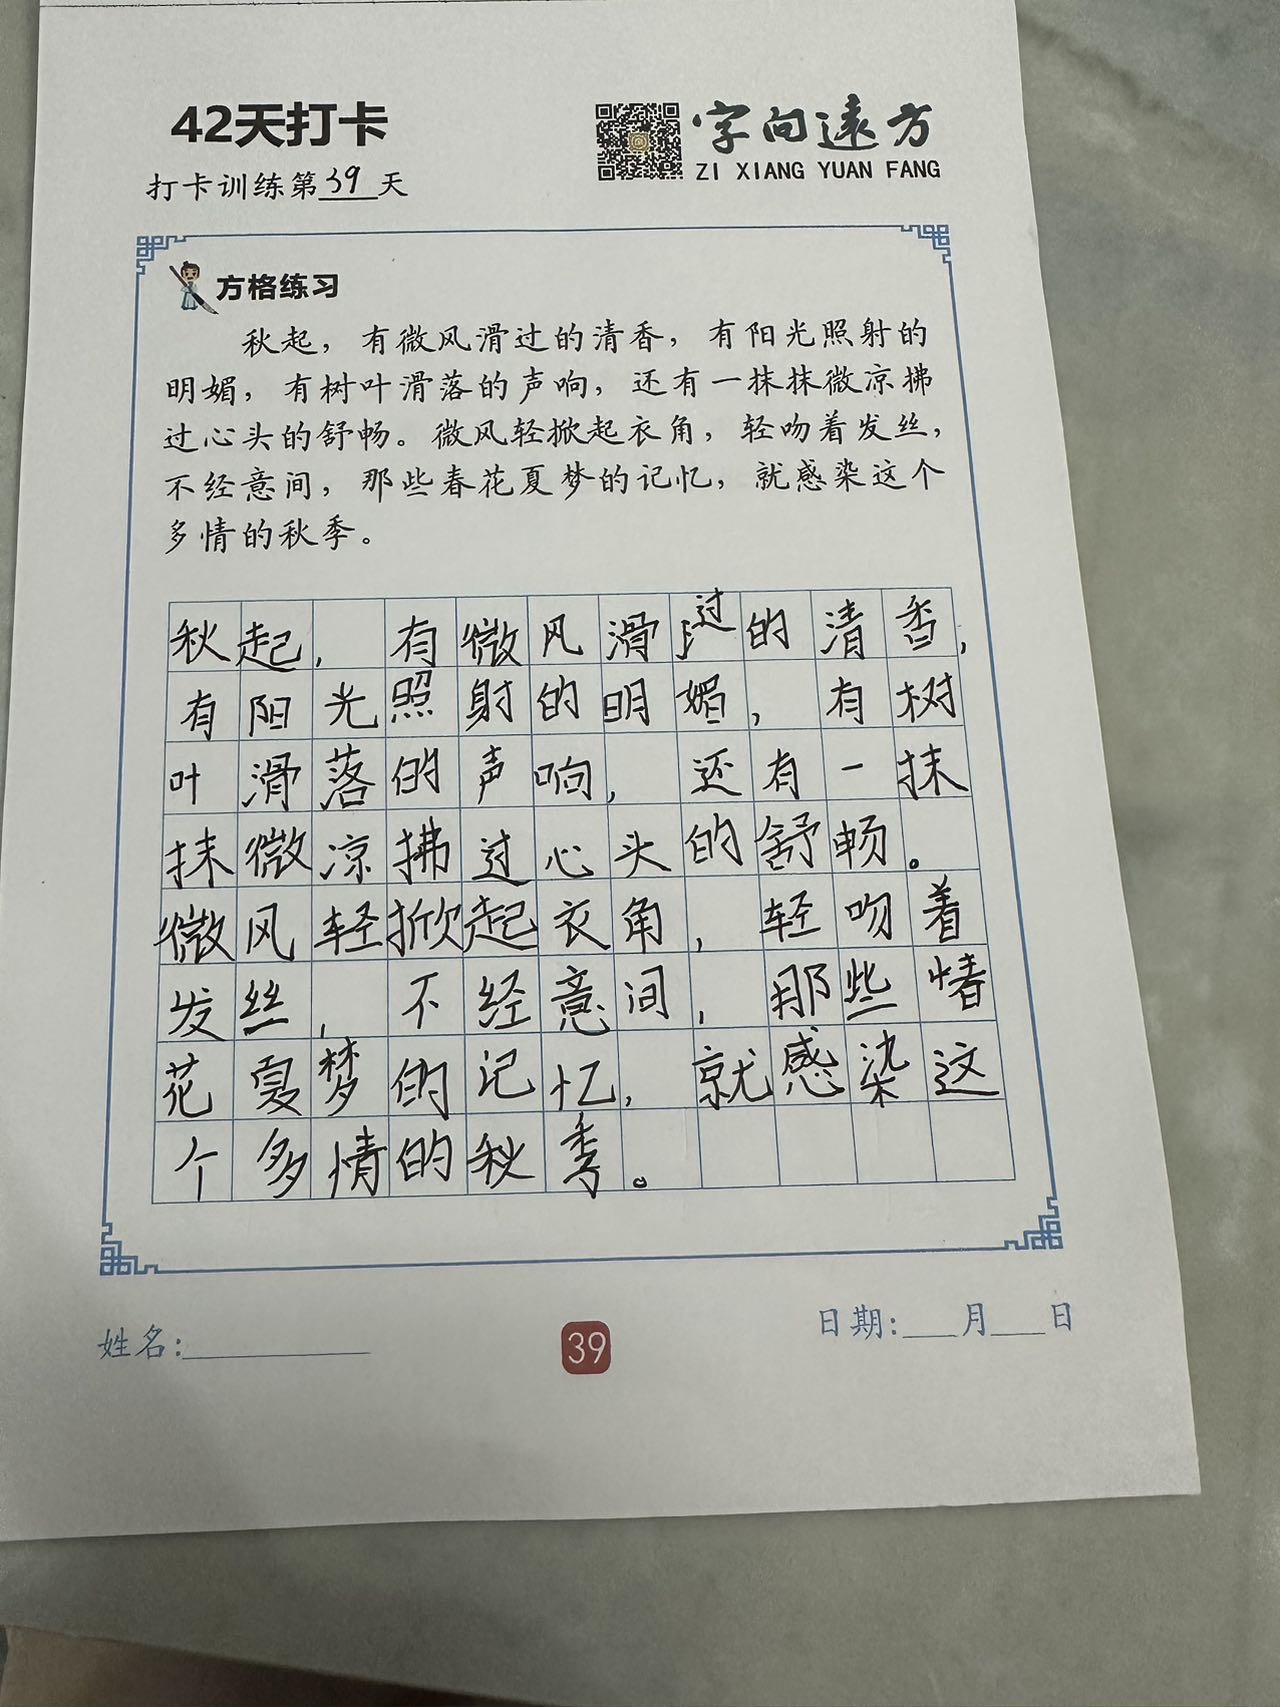 42天打卡
字向远方
ZI XIANG YUAN FANG
打卡训练第39天
方格练习
秋起，有微风滑过的清香，有阳光照射的
明媚，有树叶滑落的声响，还有一抹抹微凉拂
过心头的舒畅。微风轻掀起衣角，轻吻着发丝，
不经意间，那些春花夏梦的记忆，就感染这个
多情的秋季。
秋起，有微风滑过的清香，
有阳光照射的明媚，有树
叶滑落的声响，还有一抹
抹微凉拂过心头的舒畅。
微风轻掀起衣角，轻吻着
发丝，不经意间，那些
花夏梦的记忆，就感染这
个多情的秋季。
姓名:
39
日期:___月___日